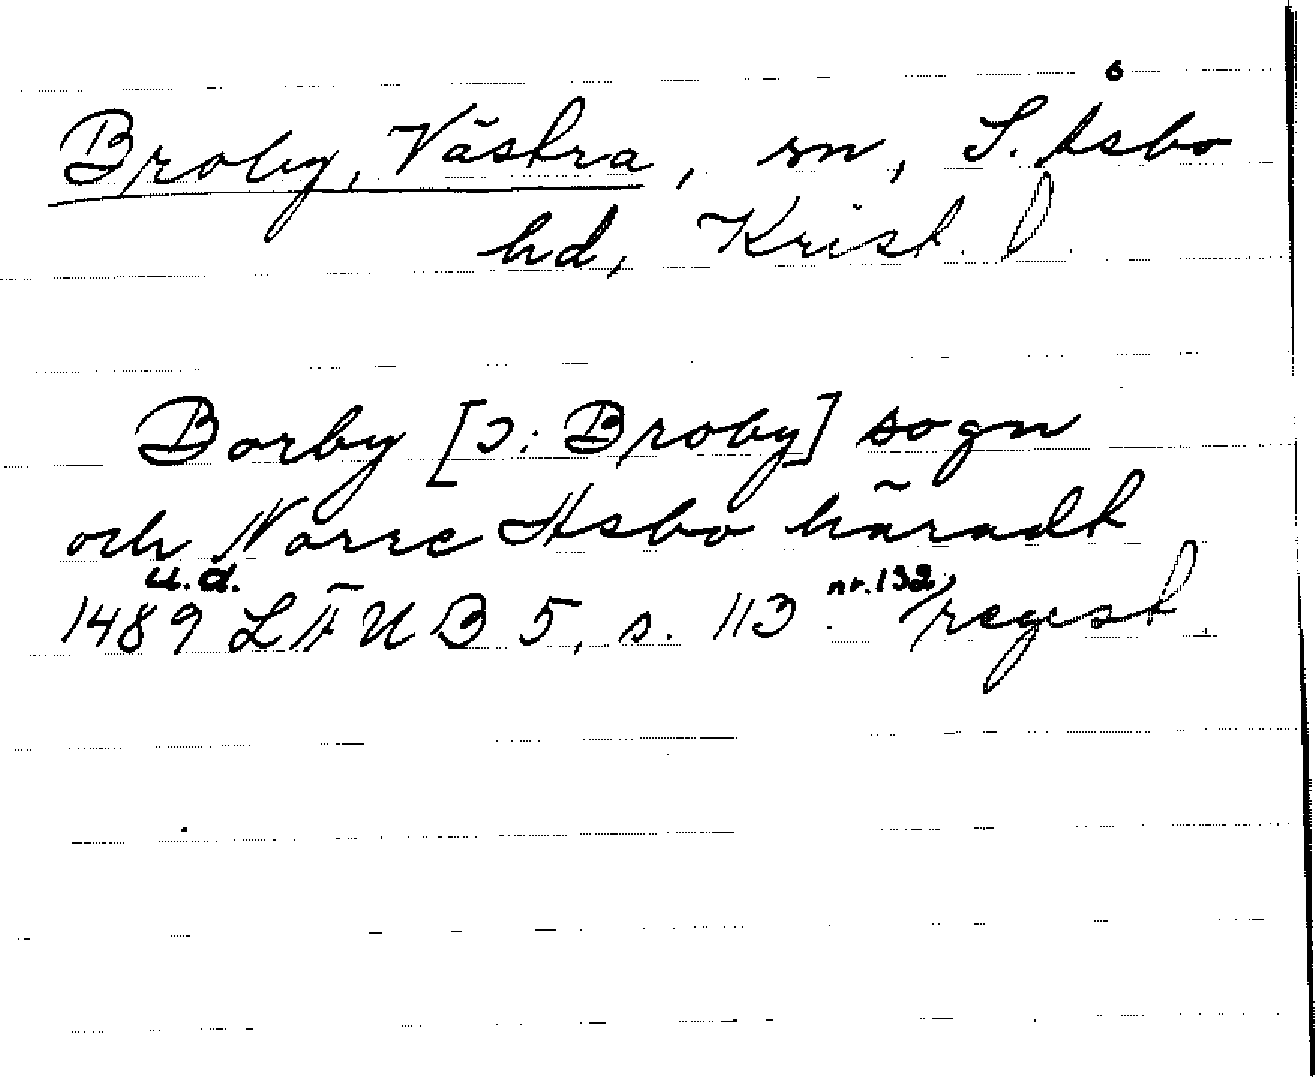 Broby, Västra, sn, S. Åsbo
hd, Krist. l.
Borby [ɔ: Broby] sogn
och Norre Asbo häradt
1489 u.d. LÄUB 5, s. 113 nr. 132, regest.